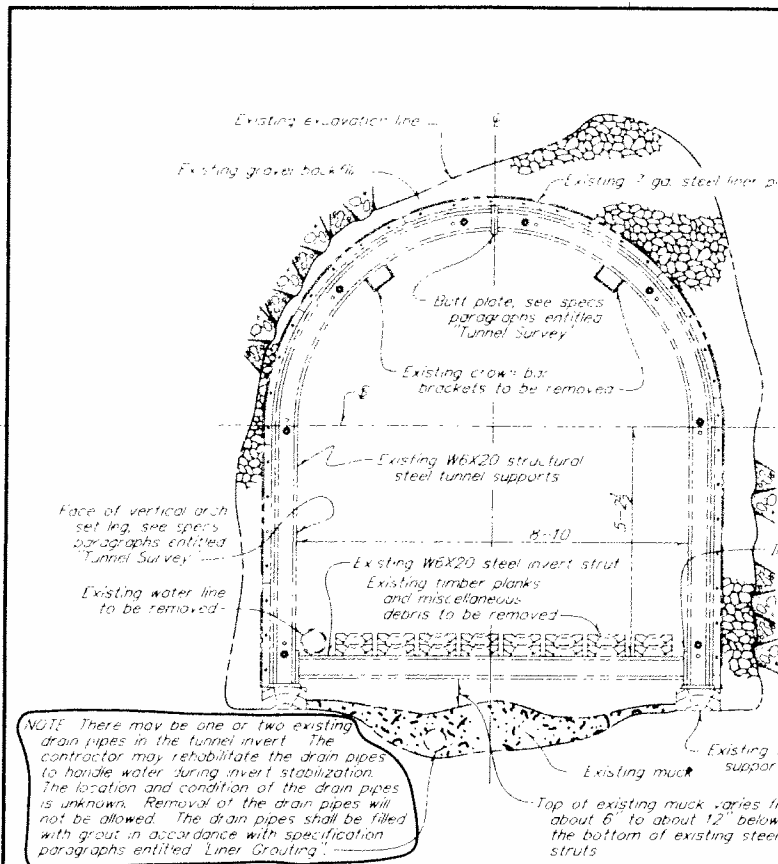 Existing excavation line
℄
Existing gravel backfill
Existing 7 ga. steel liner
Butt plate, see specs
paragraphs entitled
"Tunnel Survey"
Existing crown bar
brackets to be removed
Existing W6X20 structural
steel tunnel supports
Face of vertical arch
set leg, see specs
paragraphs entitled
"Tunnel Survey"
8-10
Existing W6X20 steel invert strut
Existing timber planks
and miscellaneous
debris to be removed
Existing water line
to be removed
NOTE There may be one or two existing
drain pipes in the tunnel invert. The
contractor may rehabilitate the drain pipes
to handle water during invert stabilization.
The location and condition of the drain pipes
is unknown. Removal of the drain pipes will
not be allowed. The drain pipes shall be filled
with grout in accordance with specification
paragraphs entitled "Liner Grouting".
Existing
support
Existing muck
Top of existing muck varies
about 6" to about 12" below
the bottom of existing steel
struts